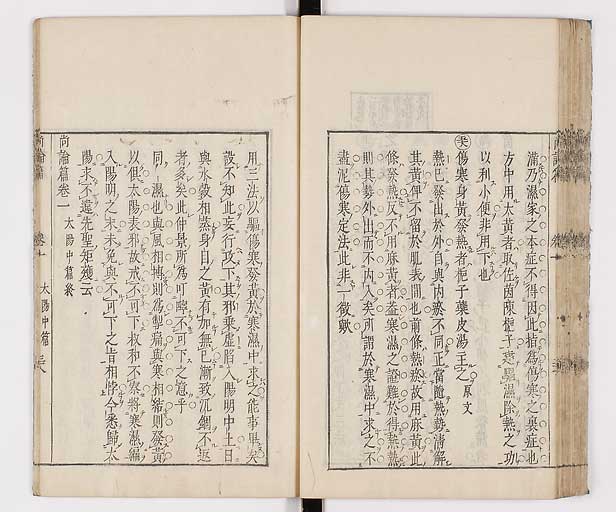 滿乃濕家之本症不得因此指爲傷寒之裏症也
方中用大黃者取佐茵陳梔子建驅濕除熱之功
以利小便非用下也
傷寒身黃發熱者梔子蘗皮湯主之原文
熱已發出於外自與內瘀不同正當隨熱勢清解
其黃俾不留於肌表間也前條熱瘀故用麻黃此
條發熱反不用麻黃者蓋寒濕之證難於得熱熱
則其勢外出而不內入矣所謂於寒濕中求之不
盡泥傷寒定法此非一徵歟
用三法以驅傷寒發黃於寒濕中求之能事畢矣
設不知此妄行攻下其邪乘虛陷入陽明中土日
與水穀相蒸身目之黃有加無已漸致沉錮不返
者多矣此仲景所爲叮嚀不可下之意乎
同一濕也與風相搏則爲掣痛與寒相結則發黃
以俱太陽表邪故戒不可下叔和不察將寒濕編
入陽明之末未免與不可下之旨相悖今悉歸太
陽求不遠先聖矩矱云
尚論篇卷一 太陽中篇終
尚論篇 卷一 太陽中篇